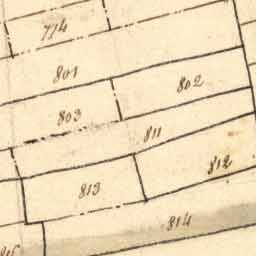 774
801
802
803
811
812
813
814